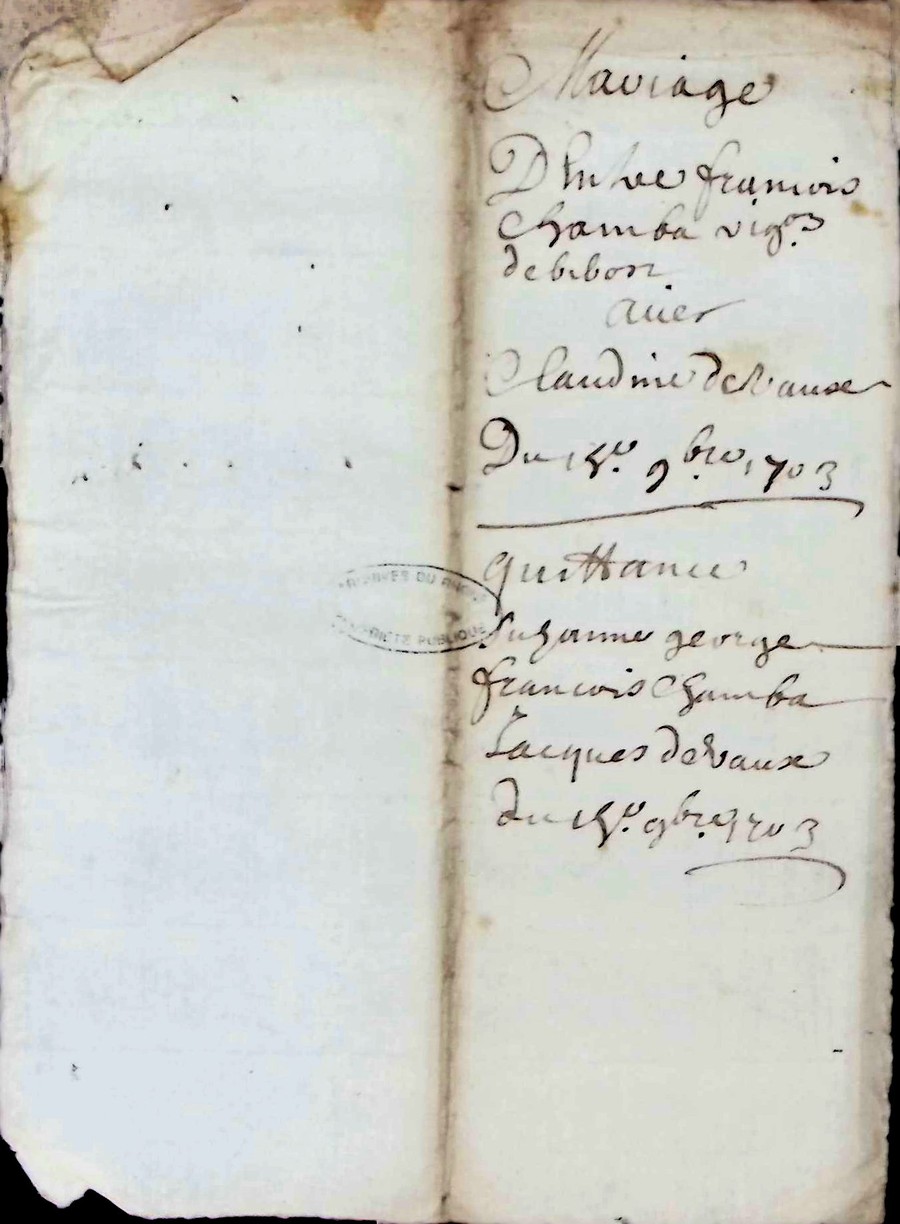 Mariage
D'Entre francois
Chamba vig.on
de bibost
avec
Claudine deVaux
Du 15.e 9.bre 1703
quittance
ARCHIVES DU RHONE
PROPRIETE PUBLIQUE
Suzanne george
francois Chamba
Jacques deVaux
du 15.e 9bre. 1703